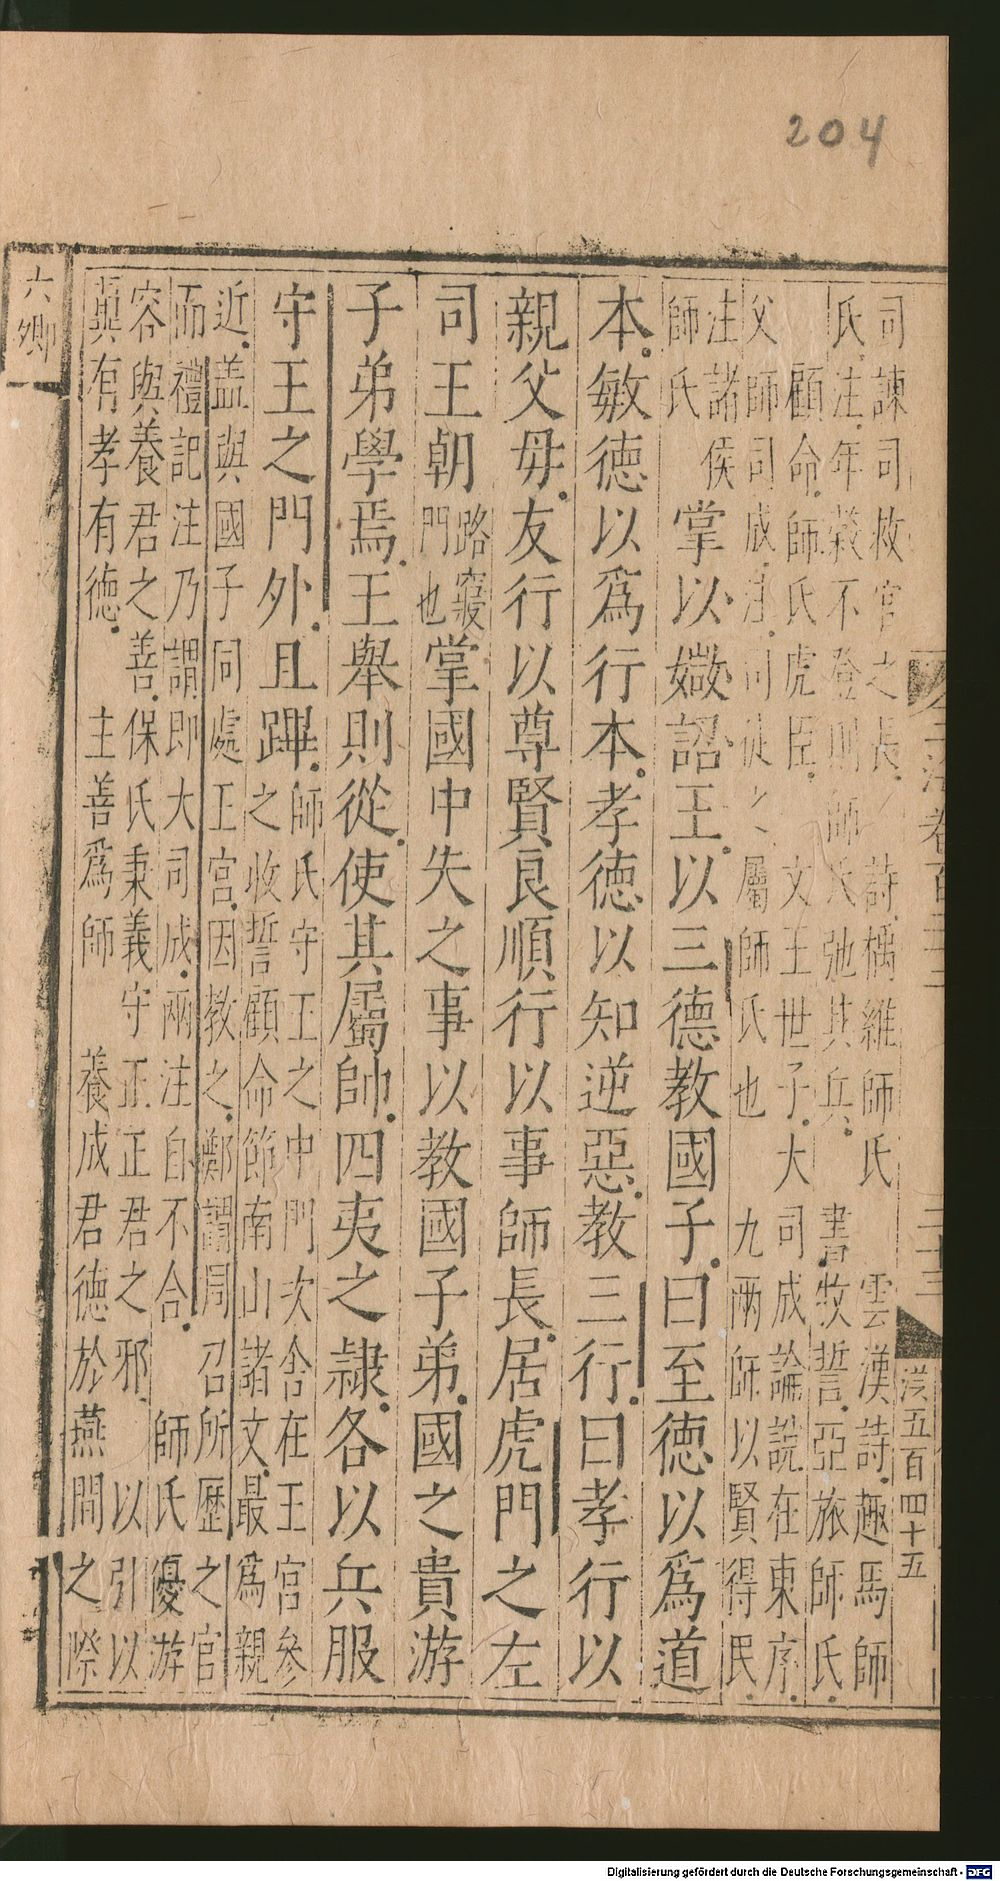 204
玉海卷百二十三
二十三
洪五百四十五
司諫司救官之長。詩楀維師氏 雲漢詩。趣馬師
氏。注。年榖不登則師氏弛其兵。書牧誓。亞旅師氏。
顧命。師氏虎臣。文王世子。大司成論說在東序。
父師司成。注。司徒之屬師氏也 九兩師以賢得民。
注諸侯
師氏
掌以媺詔王。以三德教國子。曰至德以爲道
本。敏德以爲行本。孝德以知逆惡。教三行。曰孝行以
親父母。友行以尊賢良順行以事師長。居虎門之左
司王朝
路寢
門也
掌國中失之事以教國子弟。國之貴游
子弟學焉。王舉則從。使其屬帥。四夷之隷。各以兵服
守王之門外。且蹕。
師氏守王之中門次舍在王宮參
之收誓顧命節南山諸文。最爲親
近。盖與國子同處王宮。因教之。鄭謂周召所歷之官
而禮記注乃謂即大司成。兩注自不合。 師氏優游
容與養君之善。保氏秉義守正正君之邪。 以引以
翼有孝有德。 主善爲師 養成君德於燕間之際
六卿
Digitalisierung gefördert durch die Deutsche Forschungsgemeinschaft - DFG